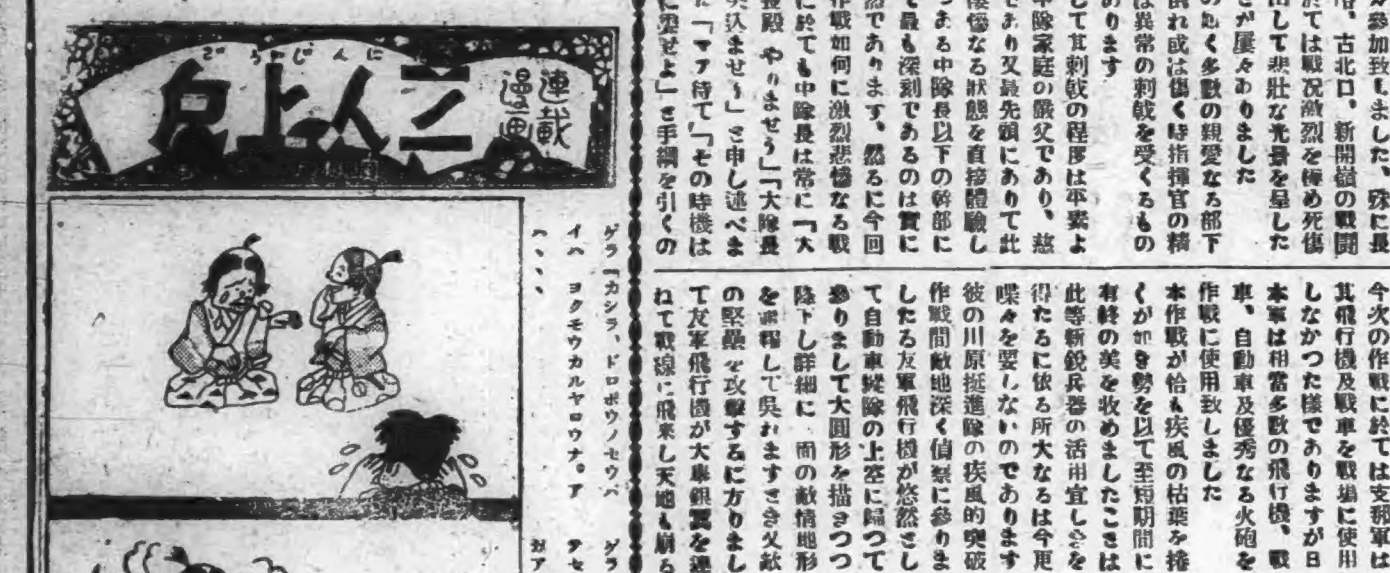 が參加致しました、殊に長
古北口、新開嶺の戰鬪
於ては戰況激烈を極め死傷
出して悲壯な光景を呈した
が屢々ありました
の如く多數の親愛なる部下
倒れ或は傷く時指揮官の精
は異常の刺戟を受くるもの
あります
して其刺戟の程度は平素よ
中隊家庭の嚴父であり、慈
であり又最先頭にありて此
悽慘なる狀態を直接體驗し
つある中隊長以下の幹部に
て最も深刻であるのは實に
然であります、然るに今回
作戰如何に激烈悲慘なる戰
に於ても中隊長は常に「大
長殿 やりませう」「大隊長
突込ませう」と申し述べま
「マア待て」「その時機は
に委せよ」と手綱を引くの
今次の作戰に於ては支那軍は
其飛行機及戰車を戰場に使用
しなかつた樣でありますが日
本軍は相當多數の飛行機、戰
車、自動車及優秀なる火砲を
作戰に使用致しました
本作戰が恰も疾風の枯葉を捲
くが如き勢を以て至短期間に
有終の美を收めましたことは
此等新銳兵器の活用宜しきを
得たるに依る所大なるは今更
喋々を要しないのであります
彼の川原挺進隊の疾風的突破
作戰間敵地深く偵察に參りま
したる友軍飛行機が悠然とし
て自動車縱隊の上空に歸つて
參りまして大圓形を描きつつ
降下し詳細に 面の敵情地形
を通報して吳れますとき又敵
の堅壘を攻擊するに方りまし
て友軍飛行機が大擧銀翼を連
ねて戰線に飛來し天地も崩る
連載
漫画
にんじやうご
二人上戸
ゲラ「カシラ、ドロボウノセウバ
イハ ヨクモウカルヤロウナ。ア
ハ、、、